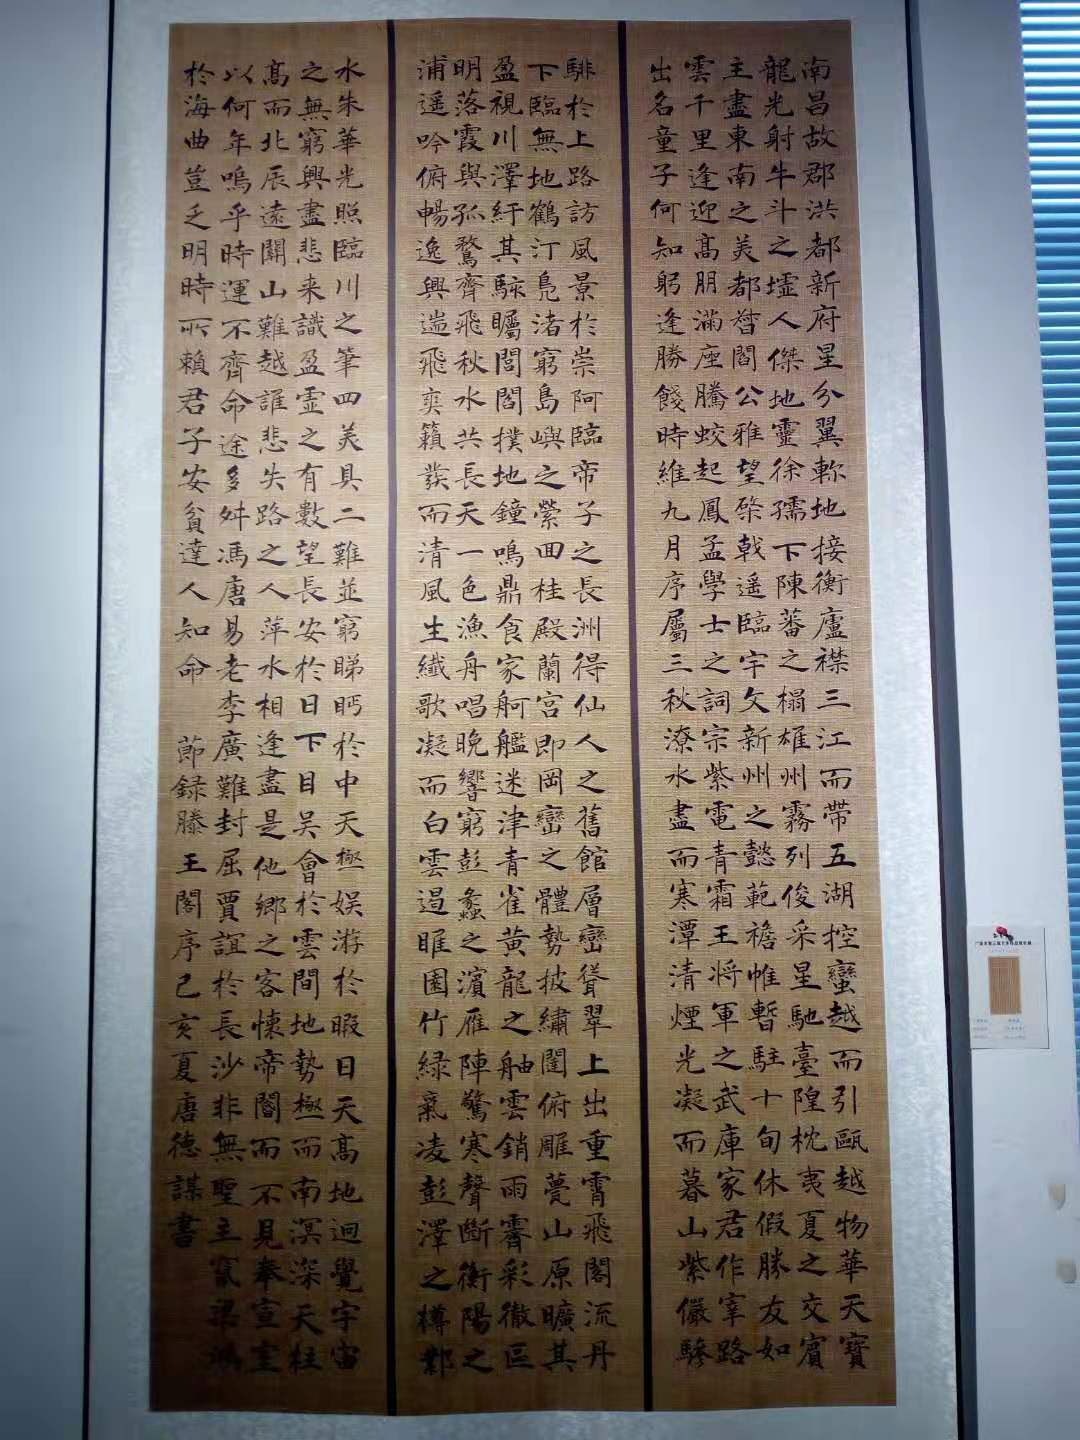 南昌故郡洪都新府星分翼軫地接衡廬襟三江而帶五湖控蠻越而引甌越物華天寶
龍光射牛斗之墟人傑地靈徐孺下陳蕃之榻雄州霧列俊采星馳臺隍枕夷夏之交賓
主盡東南之美都督閻公雅望棨戟遥臨宇文新州之懿範襜帷暫駐十旬休假勝友如
雲千里逢迎髙朋滿座騰蛟起鳳孟學士之詞宗紫電青霜王將軍之武庫家君作宰路
出名童子何知躬逢勝餞時維九月序屬三秋潦水盡而寒潭清煙光凝而暮山紫儼驂
騑於上路訪風景於崇阿臨帝子之長洲得仙人之舊館層巒聳翠上出重霄飛閣流丹
下臨無地鶴汀鳧渚窮島嶼之縈回桂殿蘭宮即岡巒之體勢披繡闥俯雕甍山原曠其
盈視川澤紆其駭矚閭閻撲地鐘鳴鼎食家舸艦迷津青雀黃龍之舳雲銷雨霽彩徹區
明落霞與孤鶩齊飛秋水共長天一色漁舟唱晚響窮彭蠡之濱雁陣驚寒聲斷衡陽之
浦遥吟俯暢逸興遄飛爽籟發而清風生纖歌凝而白雲遏睢園竹緑氣凌彭澤之樽鄴
水朱華光照臨川之筆四美具二難並窮睇眄於中天極娱游於暇日天髙地迥覺宇宙
之無窮興盡悲来識盈靈之有數望長安於日下目吴會於雲間地勢極而南溟深天柱
髙而北辰遠關山難越誰悲失路之人萍水相逢盡是他鄉之客懐帝閽而不見奉宣室
以何年嗚乎時運不齊命途多舛馮唐易老李廣難封屈賈誼於長沙非無聖主竄梁鴻
於海曲豈乏明時所賴君子安貧達人知命 節録滕王閣序己亥夏唐德謀書